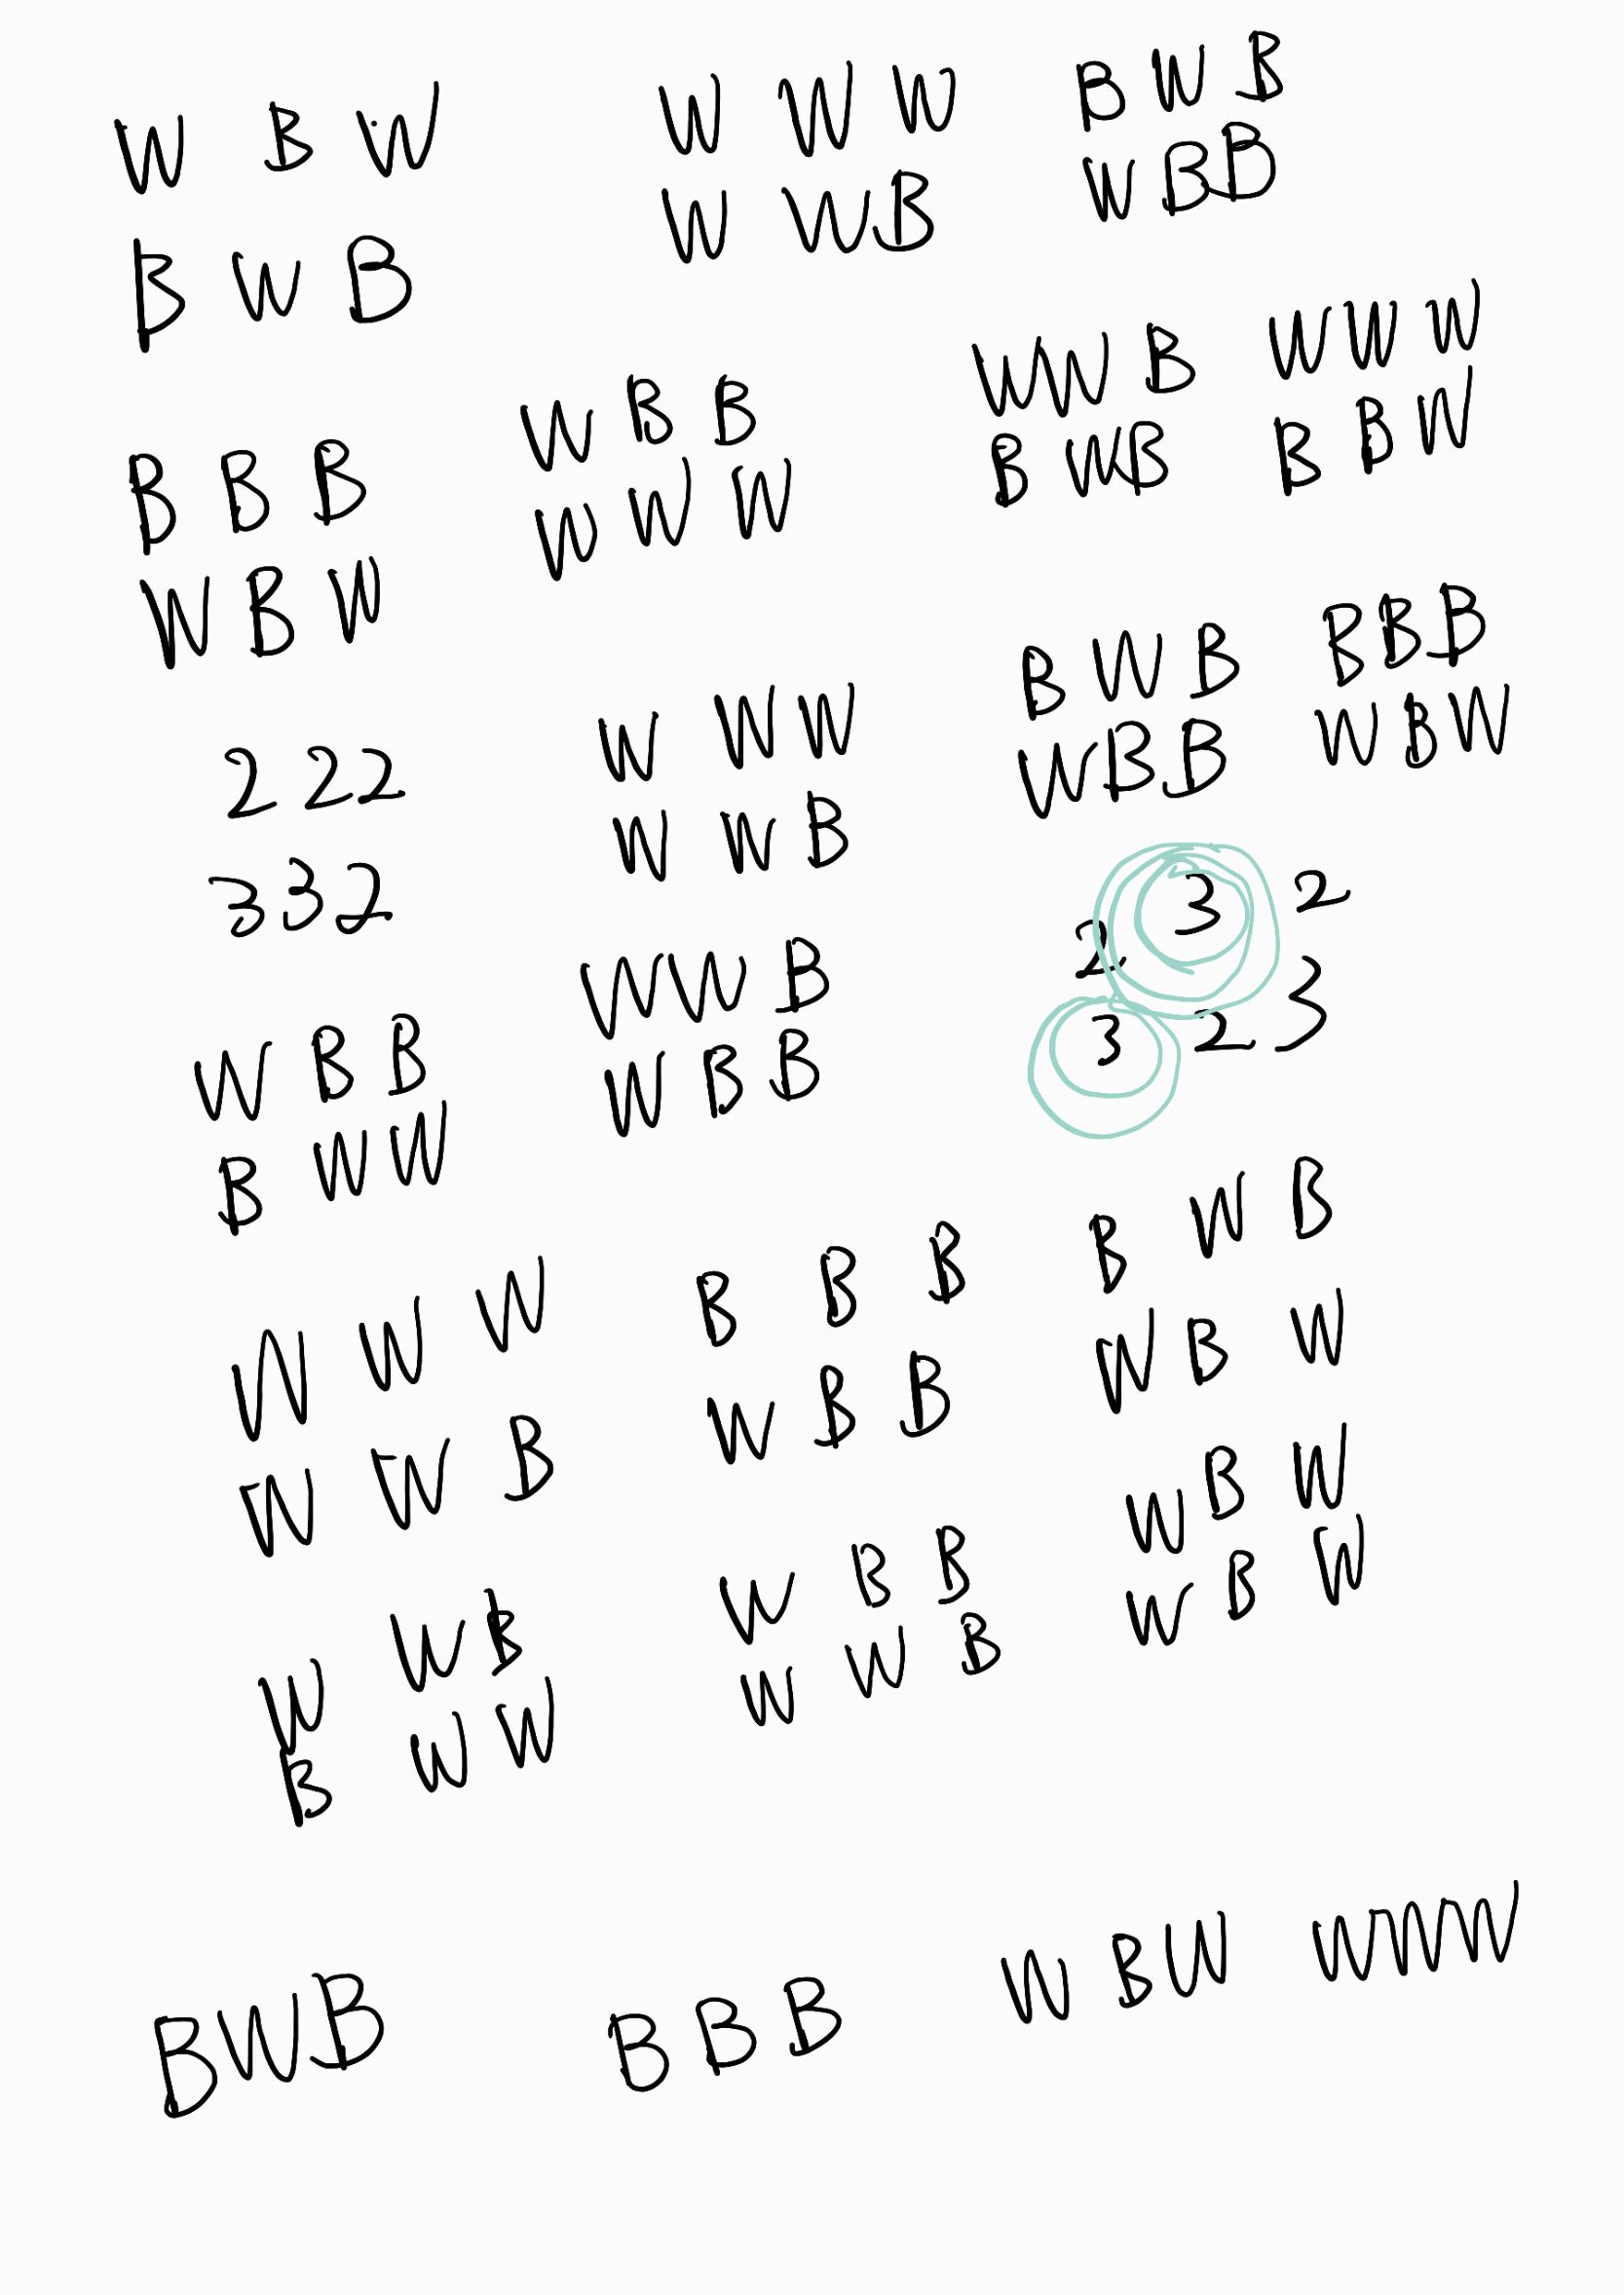 W B W
B W B
W W W
W W B
B W B
W B B
B B B
W B W
W B B
W W W
W W B
B W B
W W W
B B W
2 2 2
3 3 2
W W W
W W B
B W B
W B B
B B B
W B W
W W B
W B B
2 3 2
3 2 3
W B B
B W W
W W W
W W B
B B B
W B B
B W B
W B W
W W B
B W W
W B B
W W B
W B W
W B W
B W B
B B B
W B W
W W W